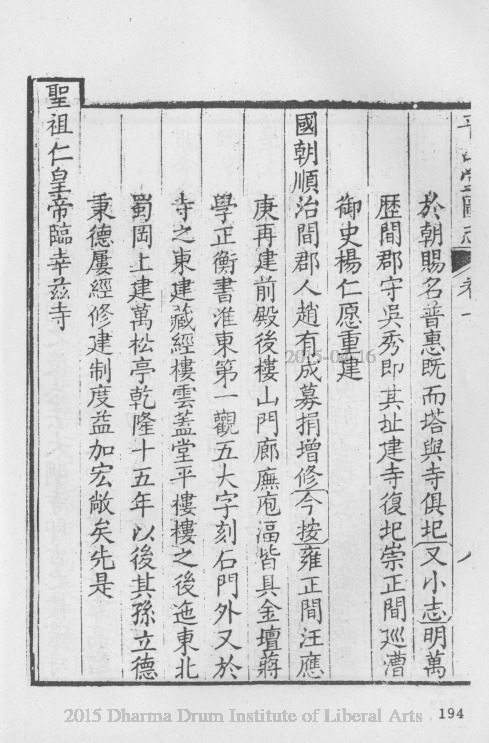 平山堂圖志 卷一 八
於朝賜名普惠旣而塔與寺俱圮又小志明萬
歷間郡守吳秀即其址建寺復圮崇正間廵漕
御史楊仁愿重建
國朝順治間郡人趙有成募捐增修今按雍正間汪應
庚再建前殿後樓山門廊廡庖湢皆具金壇蔣
學正衡書淮東第一觀五大字刻石門外又於
寺之東建藏經樓雲蓋堂平樓樓之後迤東北
蜀岡上建萬松亭乾隆十五年以後其孫立德
秉德屢經修建制度益加宏敞矣先是
聖祖仁皇帝臨幸茲寺
2015 Dharma Drum Institute of Liberal Arts
194